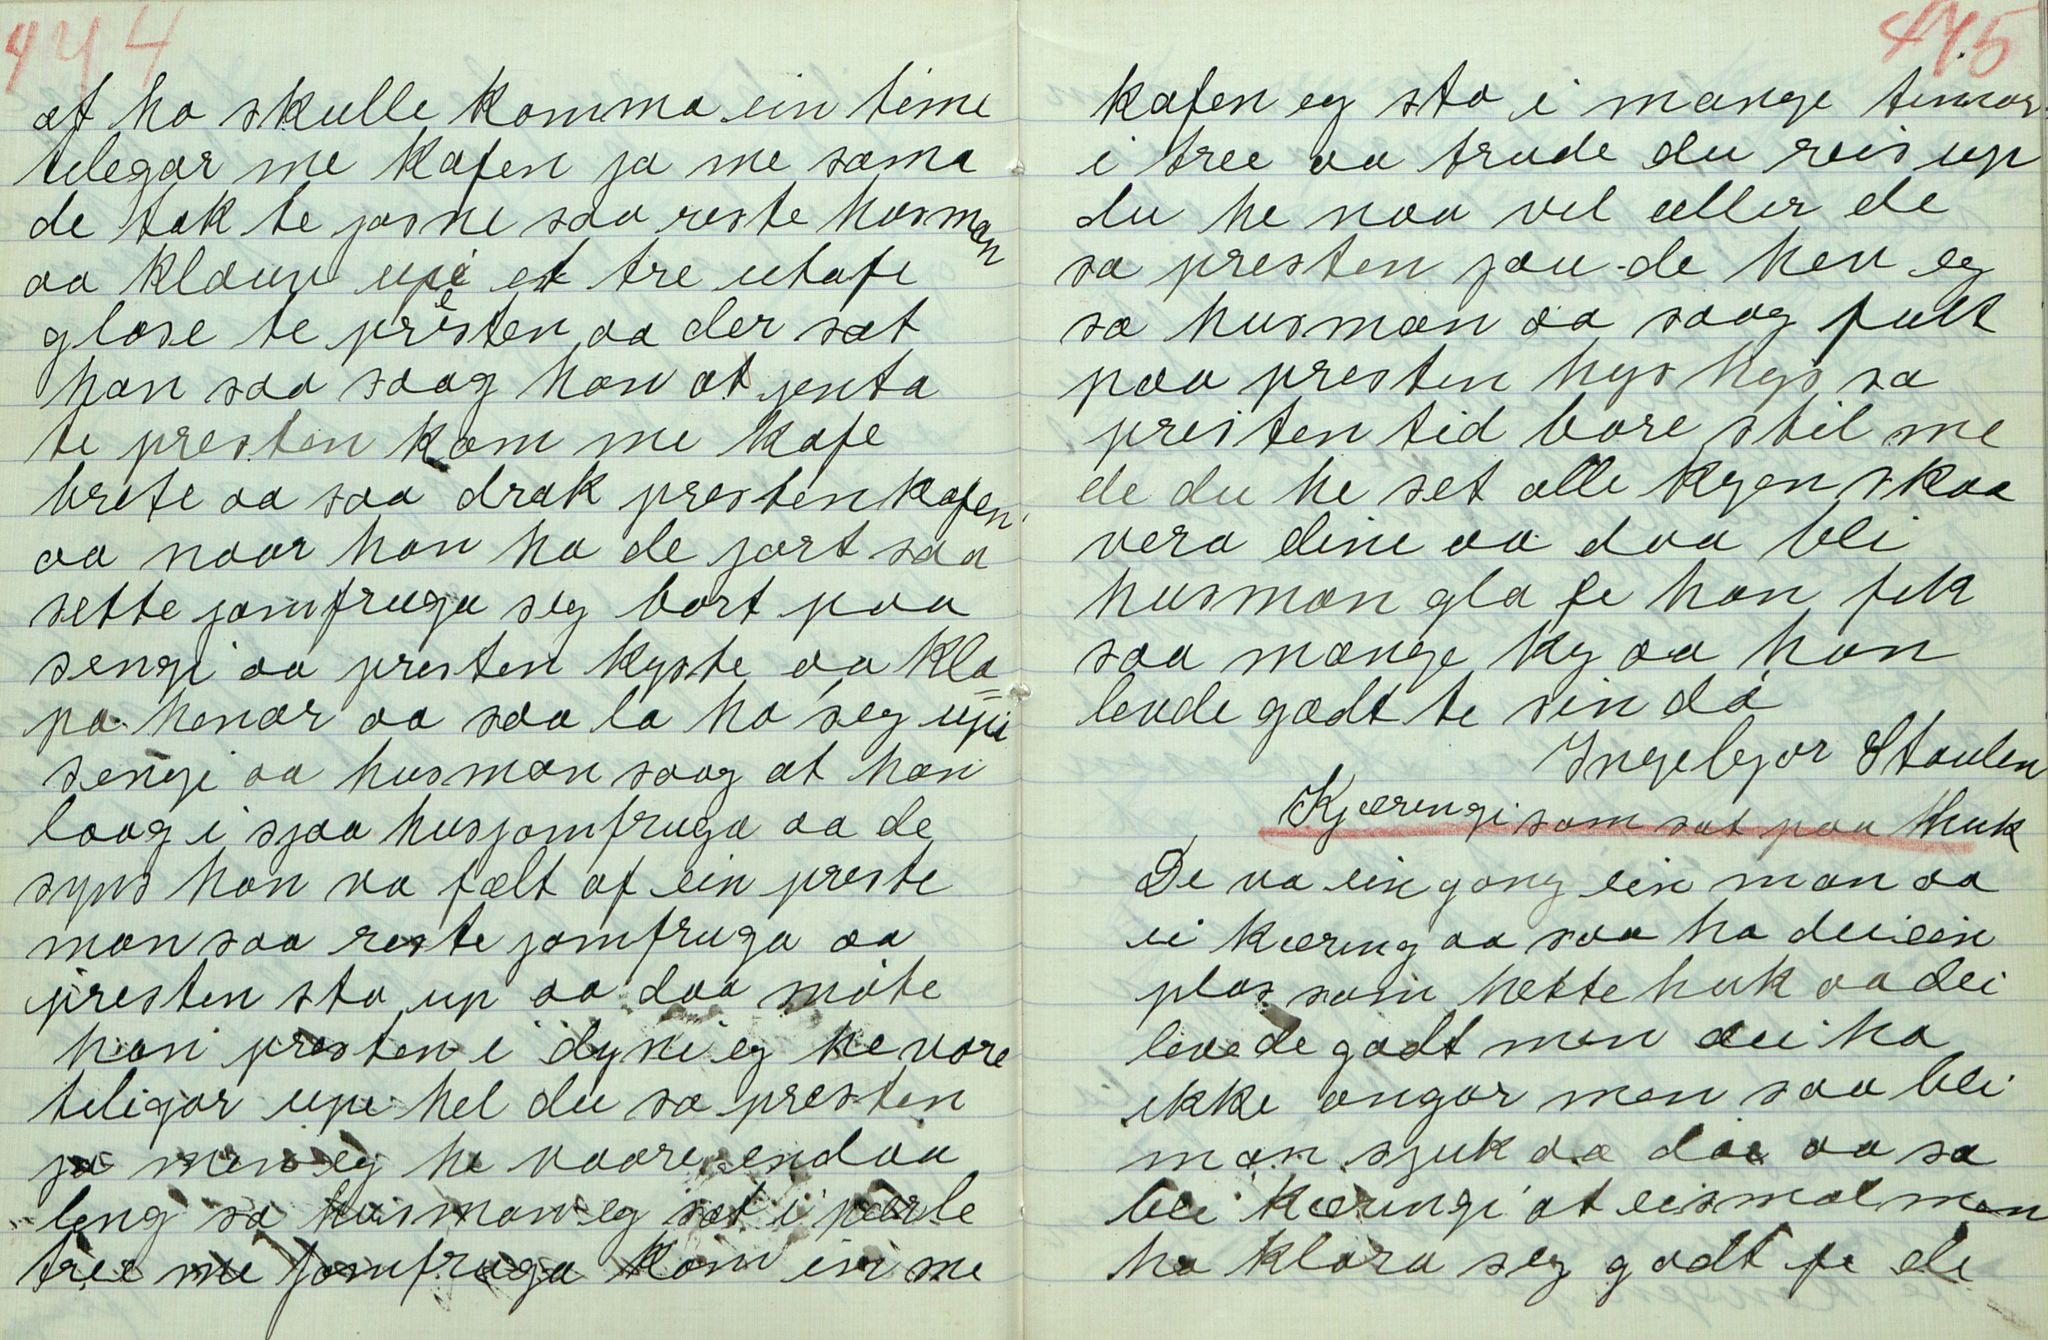 444
at ho skulle komma ein time
tilegar me kafen ja me sama
de tok te josne saa reste husman
aa klauv upi et tre utafe
glase te presten aa der sat
han saa saag han at jenta
te presten kom me kafe
brete aa saa drak presten kafen
aa naar han ha de jort saa
sette jomfruga seg bort paa
sengi aa presten kyste aa kla=
pa henar aa saa la ho seg upi
sengi aa husman saag at han
laag i sjaa husjomfruga aa de
syns han va fælt af ein preste
man saa reste jomfruga aa
presten sto up aa daa møte
han presten i dyni eg he vore
teligar upe hel du sa presten
ja men eg he vaare endaa
leng sa husman eg sat i perle
tree me jomfruga kom in me
445
kafen eg sto i mange timar
i tree aa trude du reis up
du he naa vel eller de
sa presten jau de hev eg
sa husman aa saag fult
paa presten hys hys sa
presten tid bare stil me
de du he set alle kyen skaa
vera dine aa daa blei
husman gla fe han fek
saa mange ky aa han
levde godt te sin dá
Ingebjor Staulen
Kjæringi som sat paa Huk
De va ein gong ein man aa
ei kæring aa saa ha dei ein
plas som hette huk aa dei
levede godt men dei ha
ikke ongar men saa blei
man sjuk aa døe aa sa
blei kæringi at eismal men
ho klara seg godt fe de